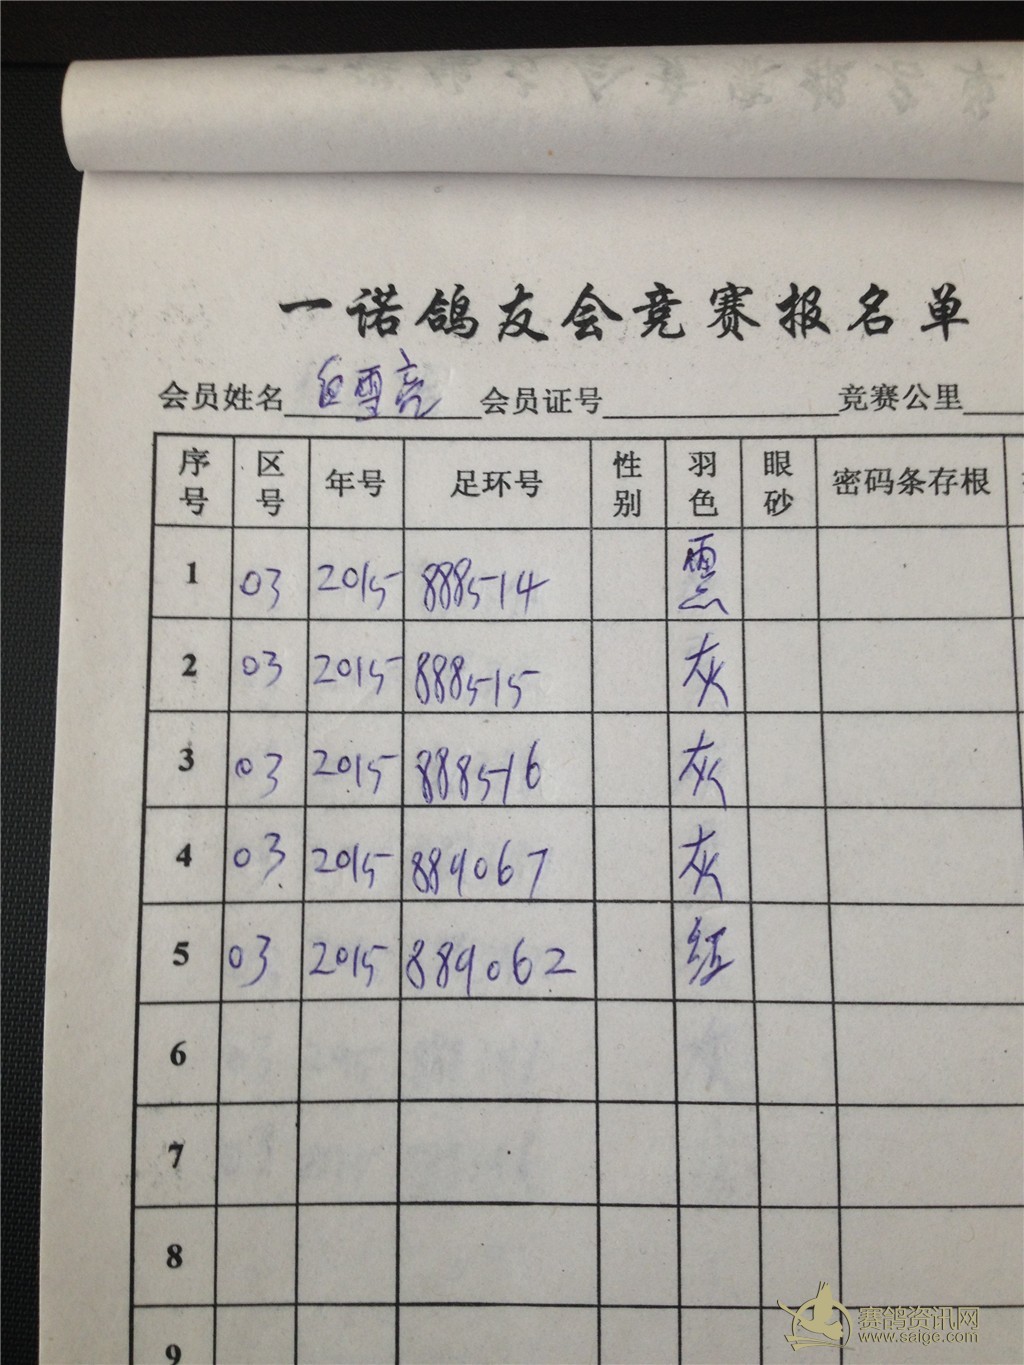 一诺鸽友会竞赛报名单
会员姓名 白雪亮 会员证号 竞赛公里
序号 区号 年号 足环号 性别 羽色 眼砂 密码条存根
1 03 2015 888514
2 03 2015 888515 灰
3 03 2015 888516 灰
4 03 2015 889067 灰
5 03 2015 889062 红
6
7
8
9
赛鸽资讯网
www.saige.com